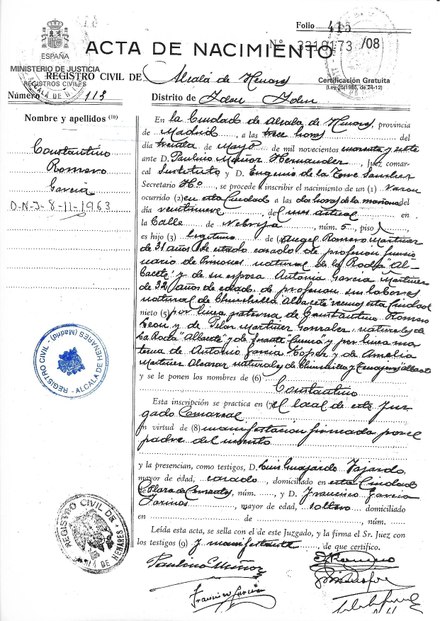 Folio 415
ESPAÑA
ACTA DE NACIMIENTO
Nº 3319173 /08
MINISTERIO DE JUSTICIA
REGISTROS CIVILES
REGISTRO CIVIL DE Alcalá de Henares
Certificación Gratuita
(Ley 25/1986, de 24-12)
Número 113
Distrito de Idem Idem
Nombre y apellidos (10)
Constantino
Romero
García
D-N-I-8-11-1963
En la Ciudad de Alcalá de Henares, provincia
de Madrid, a las trece horas del
día treinta de Mayo de mil novecientos cuarenta y siete
ante D. Paulino Muñoz Hernandez, Juez comar-
cal Sustituto y D. Eugenio de la Torre Sanchez
Secretario Hº, se procede a inscribir el nacimiento de un (1) Varon
ocurrido (2) en esta Ciudad a las dos horas de la mañana
del día veintinueve del mes actual en
la Calle de Nebrija núm. 5, piso
es hijo (3) legitimo de Angel Romero Martinez
de 31 años de estado casado de profesion funcio
nario de Prisiones natural de la Roda, Al-
bacete y de su esposa Antonia Garcia Martinez
de 32 años de edad de profesion sus labores
natural de Chinchilla Albacete vecinos esta Ciudad
nieto (5) por linea paterna de Constantino Romero
y de Pilar Martinez Gonzalez naturales de
La Roda Albacete y de y por linea ma
terna de Antonio Garcia Lopez y de Amelia
Martinez naturales de Chinchilla y Albacete
y se le ponen los nombres de (6)
Constantino
Esta inscripción se practica en (7) el local de este Juz
gado Comarcal
en virtud de (8) manifestacion firmada por el
padre del inscrito
y la presencian, como testigos, D. Luis Fajardo
mayor de edad, casado, domiciliado en esta Ciudad
núm. y D. Francisco Garcia
mayor de edad, soltero domiciliado
en
Leída esta acta, se sella con el de este Juzgado, y la firma el Sr. Juez con
los testigos (9) y manifestante de que certifico.
Paulino Muñoz
Francisco Garcia
REGISTRO CIVIL - ALCALA DE HENARES (Madrid)
REGISTRO CIVIL DE ALCALA DE HENARES